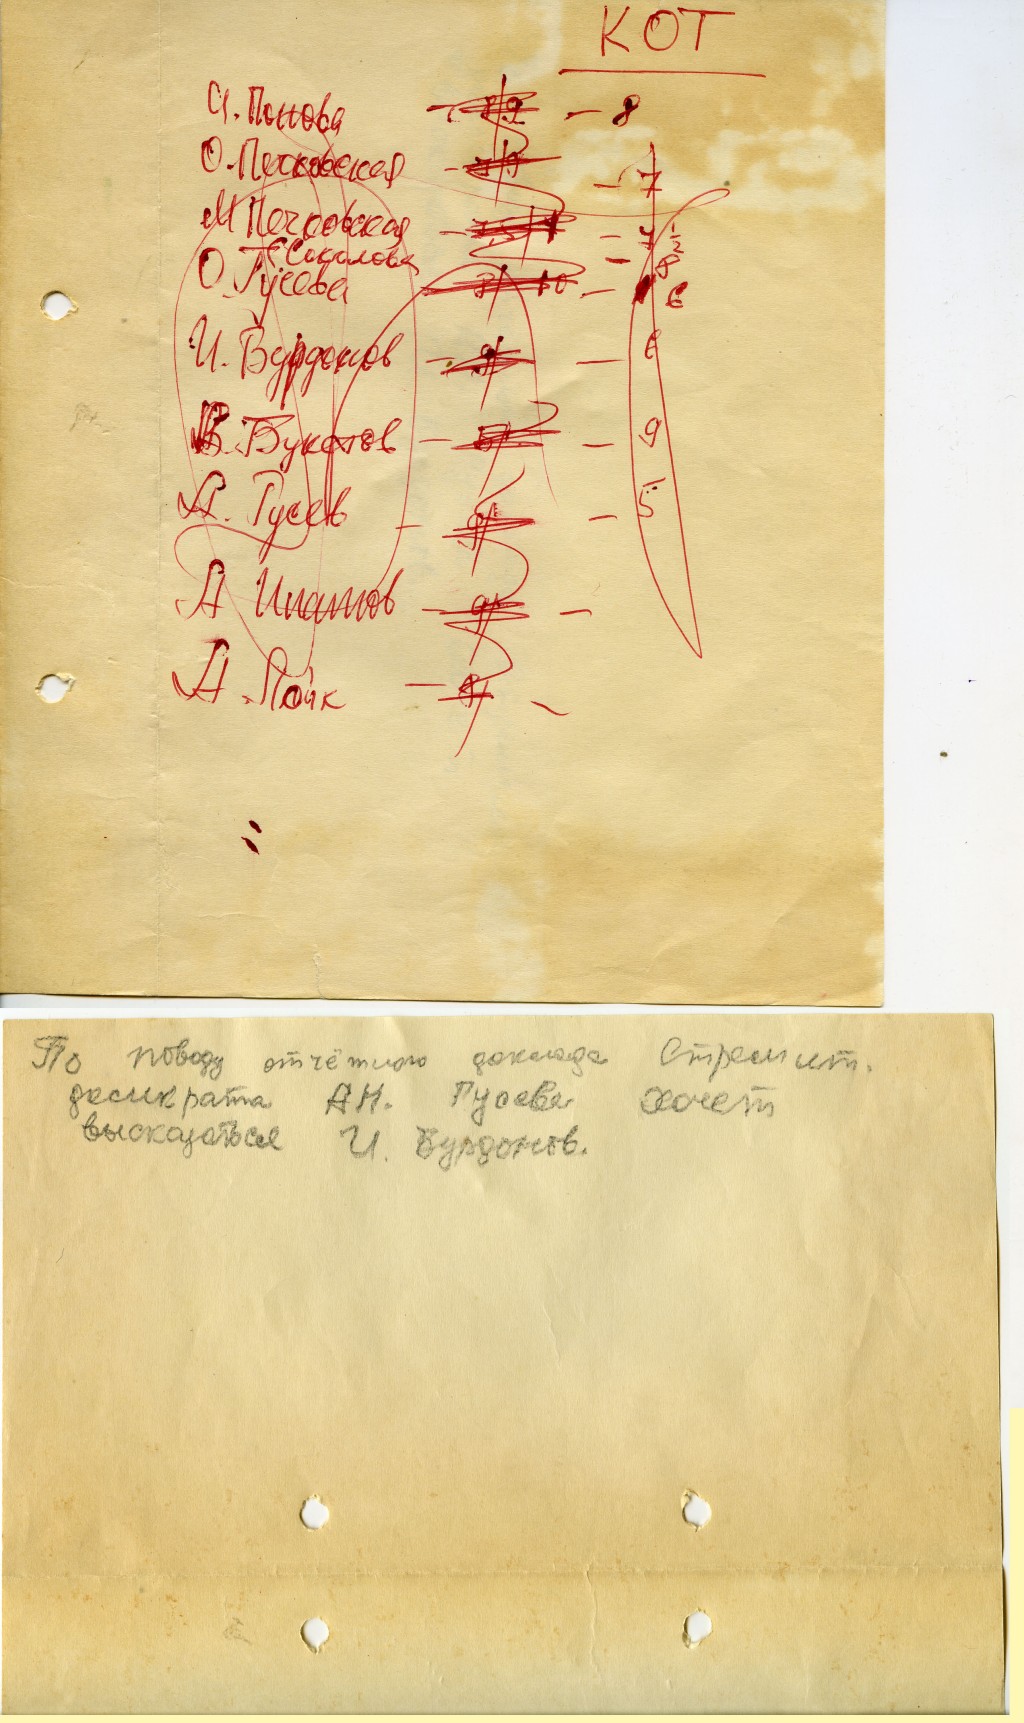 КОТ
И. Попова – 8
О. Печковская – – 7
М Печковская – – 7 1/2
Е Соколова – 8
О. Гусева – 6
И. Бурдонов – 9 – 6
В. Букатов – – 9
А. Гусев – 9 – 5
А Ипатов – 9 –
А. Лойк – –
По поводу отчётного доклада
А.Н. Гусева хочет
высказаться И. Бурдонов.